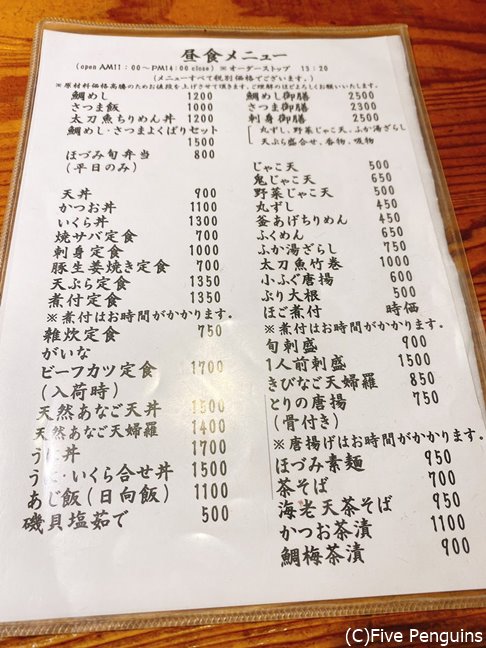 昼食メニュー
(open AM11:00～PM14:00 close) ※オーダーストップ 13:20
(メニューすべて税別価格でございます。)
※原材料価格高騰のためお値段を上げさせて頂きます。ご理解のほどよろしくお願いいたします。
鯛めし 1200
さつま飯 1000
太刀魚ちりめん丼 1200
鯛めし・さつまよくばりセット
1500
ほづみ旬弁当 800
(平日のみ)
天丼 900
かつお丼 1100
いくら丼 1300
焼サバ定食 700
刺身定食 1100
豚生姜焼き定食 700
天ぷら定食 1350
煮付定食 1350
※煮付はお時間がかかります。
雑炊定食 750
がいな
ビーフカツ定食 1700
(入荷時)
天然あなご天丼 1500
天然あなご天婦羅 1400
うに丼 1700
うに・いくら合せ丼 1500
あじ飯(日向飯) 1100
磯貝塩茹で 500
鯛めし御膳 2500
さつま御膳 2300
刺身御膳 2500
丸ずし、野菜じゃこ天、ふか湯ざらし
天ぷら盛合せ、香物、吸物
じゃこ天 500
鬼じゃこ天 650
野菜じゃこ天 500
丸ずし 450
釜あげちりめん 450
ふくめん 650
ふか湯ざらし 750
太刀魚竹巻 1000
小ふぐ唐揚 600
ぶり大根 500
ほご煮付 時価
※煮付はお時間がかかります。
旬刺盛 900
1人前刺盛 1500
きびなご天婦羅 850
とりの唐揚 750
(骨付き)
※唐揚げはお時間がかかります。
ほづみ素麺 950
茶そば 700
海老天茶そば 950
かつお茶漬 1100
鯛梅茶漬 900
(C)Five Penguins